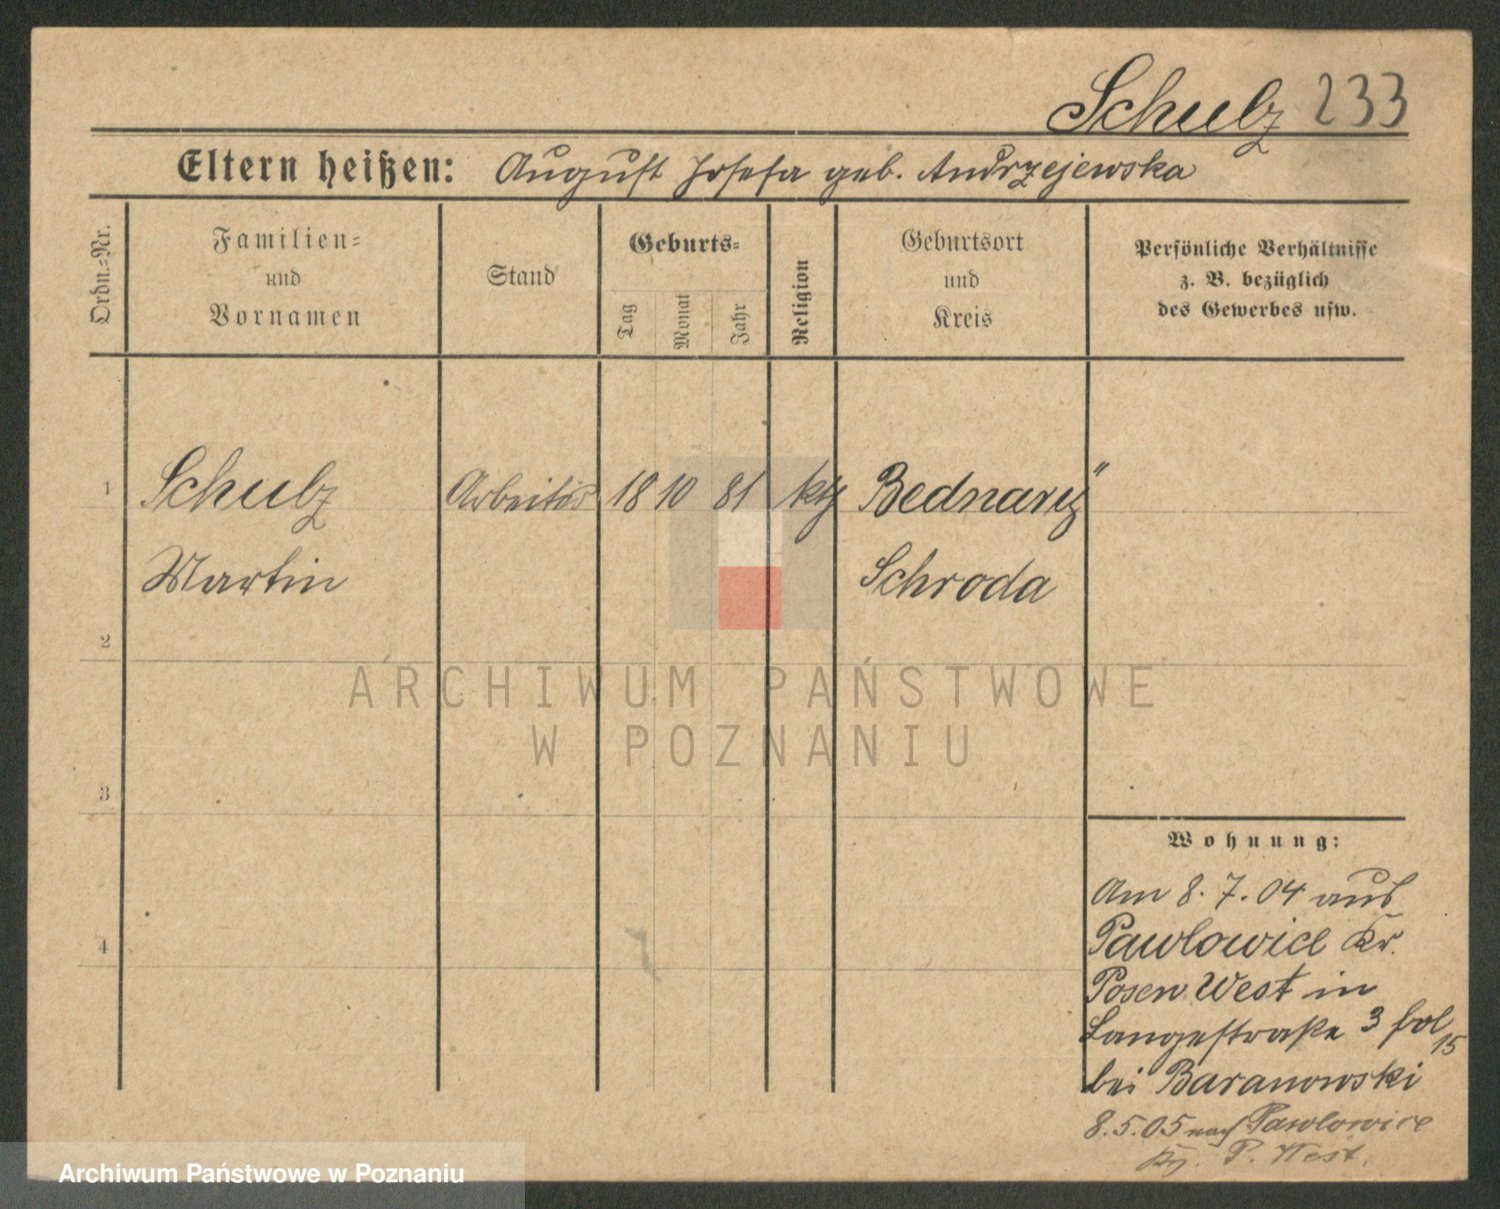 Schulz 233
Eltern heißen: August Josefa geb. Andrzejewska
Ordn.-Nr.
Familien-
und
Vornamen
Stand
Geburts-
Tag
Monat
Jahr
Religion
Geburtsort
und
Kreis
Persönliche Verhältnisse
z. B. bezüglich
des Gewerbes usw.
1 Schulz Arbeiter 18 10 81 kth Bednary
Martin Schroda
2
3
4
Wohnung:
Am 8. 7. 04 aus
Pawlowice Kr.
Posen West in
Langestraße 3 fol 15
bei Baranowski
8.5.05 nach Pawlowice
P. West.
ARCHIWUM PAŃSTWOWE
W POZNANIU
Archiwum Państwowe w Poznaniu